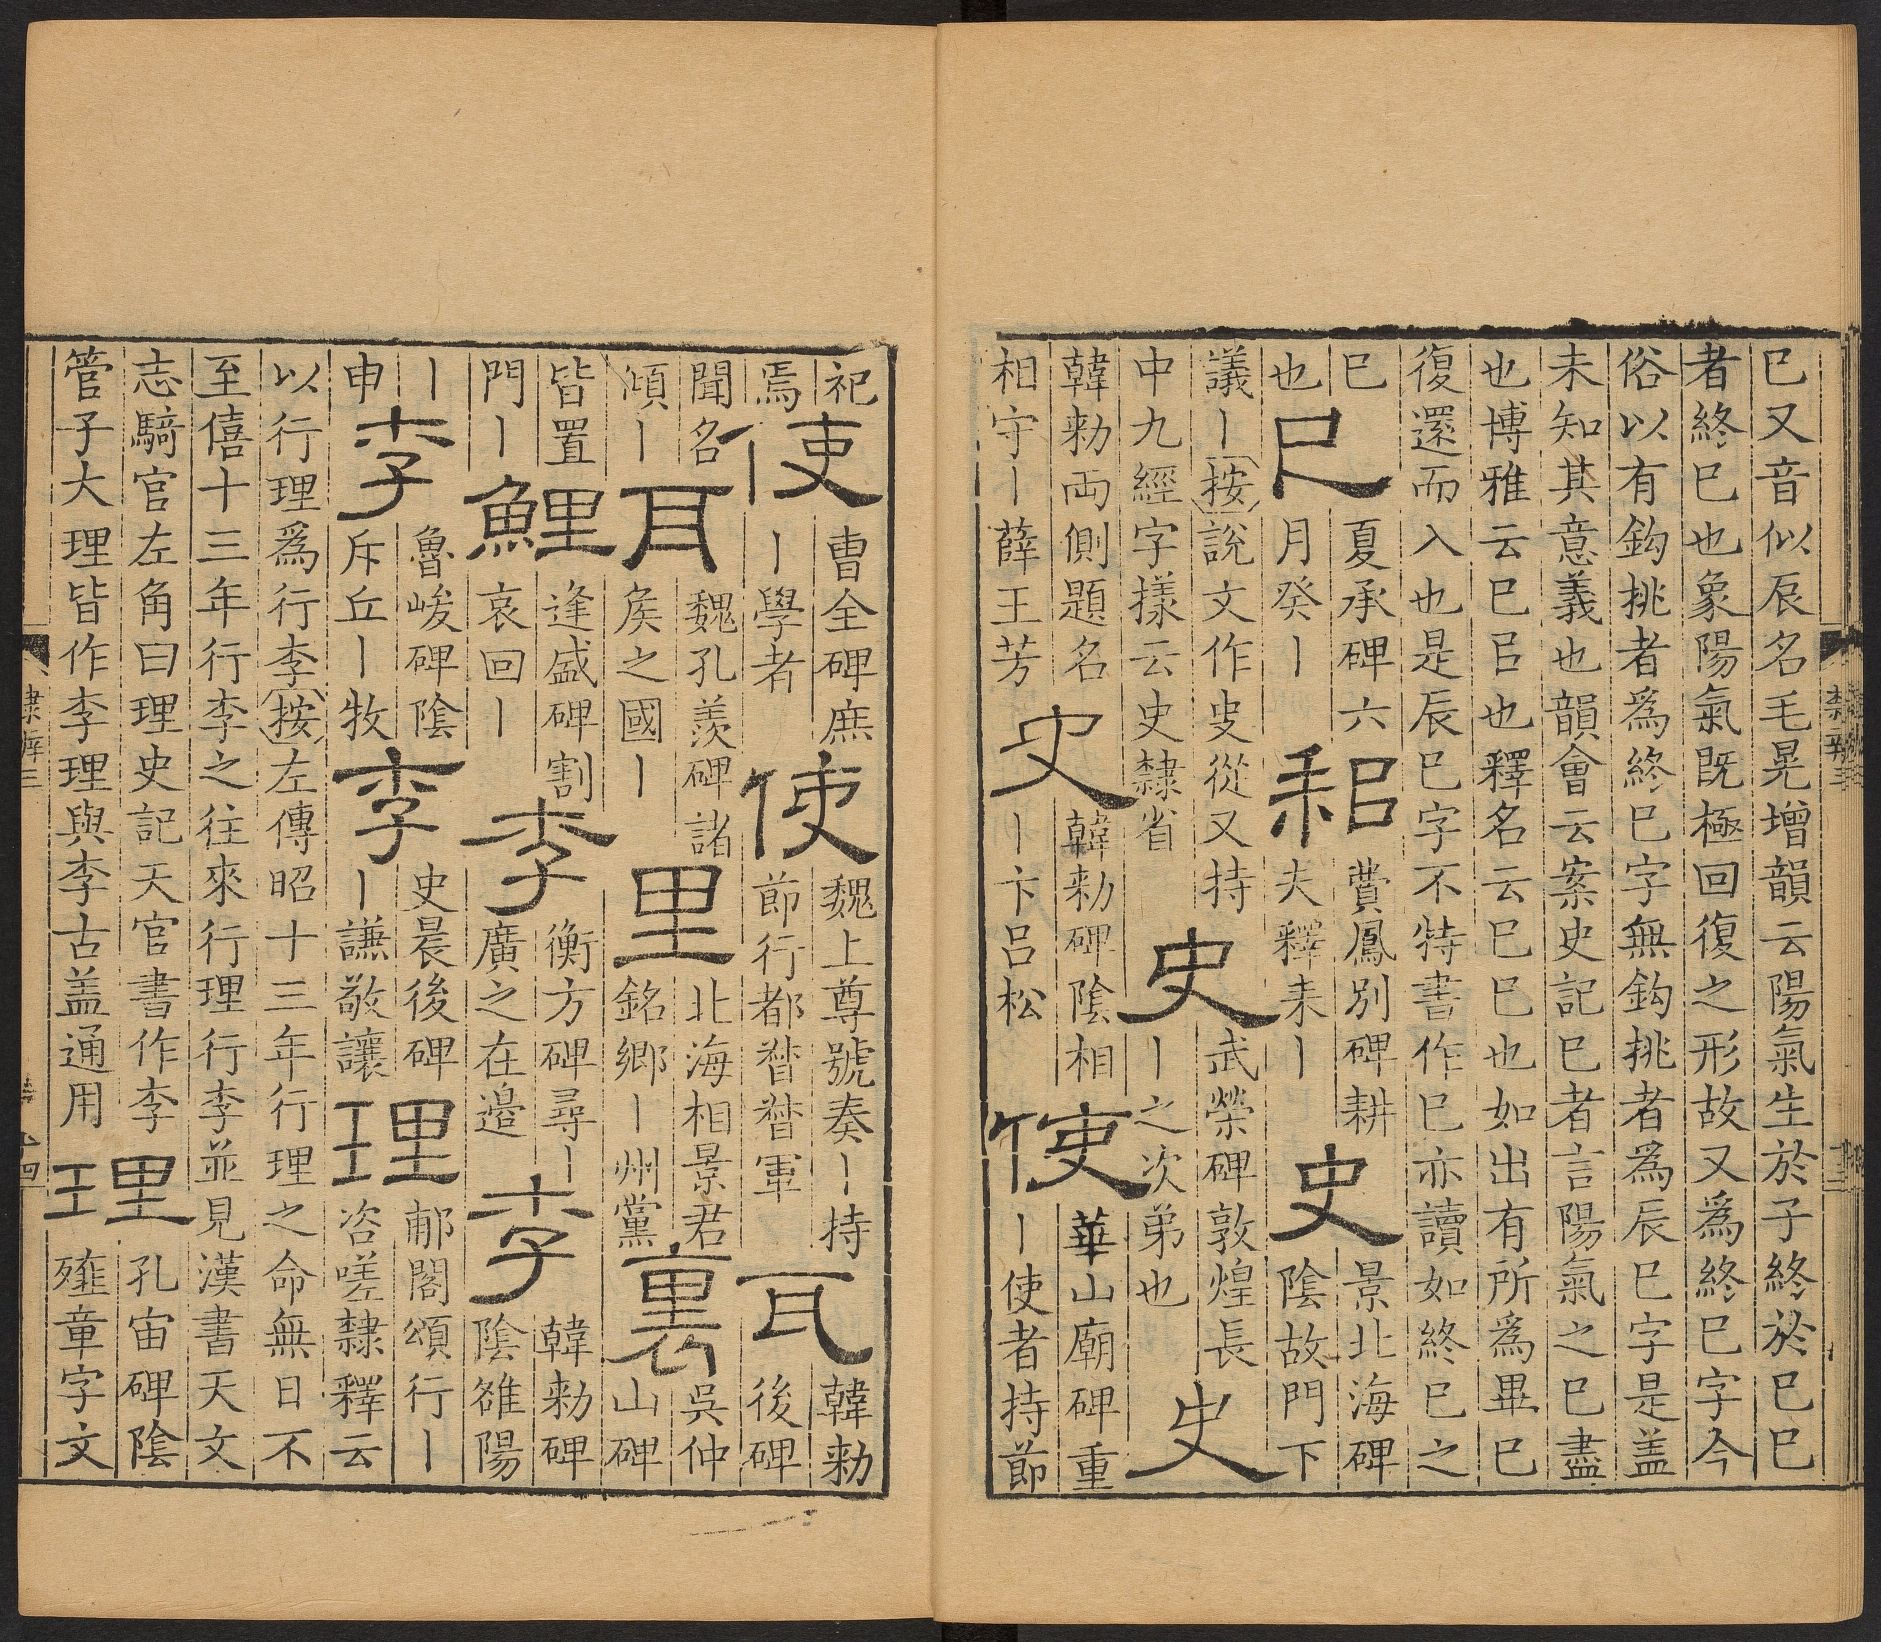 巳又音似辰名毛晃增韻云陽氣生於子終於巳巳
者終巳也象陽氣既極回復之形故又爲終巳字今
俗以有鈎挑者爲終巳字無鈎挑者爲辰巳字是盖
未知其意義也韻會云案史記巳者言陽氣之巳盡
也博雅云巳㠯也釋名云巳巳也如出有所爲畢巳
復還而入也是辰巳字不特書作巳亦讀如終巳之
巳
也
巳
夏承碑六
月癸丨
耜
費鳳別碑耕
夫釋耒丨
史
景北海碑
陰故門下
議丨按說文作㕜從又持
中九經字樣云史隸省
史
武榮碑敦煌長
丨之次弟也
史
韓勑兩側題名
相守丨薛王芳
史
韓勑碑陰相
丨卞呂松
使
華山廟碑重
丨使者持節
祀
焉
使
曹全碑庶
丨學者
使
魏上尊號奏丨持
節行都督督軍
耳
韓勑
後碑
聞名
傾丨
耳
魏孔羨碑諸
矦之國丨
里
北海相景君
銘鄉丨州黨
裏
吳仲
山碑
皆置
門丨
鯉
逢盛碑割
哀回丨
李
衡方碑尋丨
廣之在邊
李
韓勑碑
陰雒陽
丨
申
李
魯峻碑陰
斥丘丨牧
李
史晨後碑
丨謙敬讓
理
郙閣頌行丨
咨嗟隸釋云
以行理爲行李按左傳昭十三年行理之命無日不
至僖十三年行李之往來行理行李並見漢書天文
志騎官左角曰理史記天官書作李
管子大理皆作李理與李古盖通用
理
孔宙碑陰
殣童字文